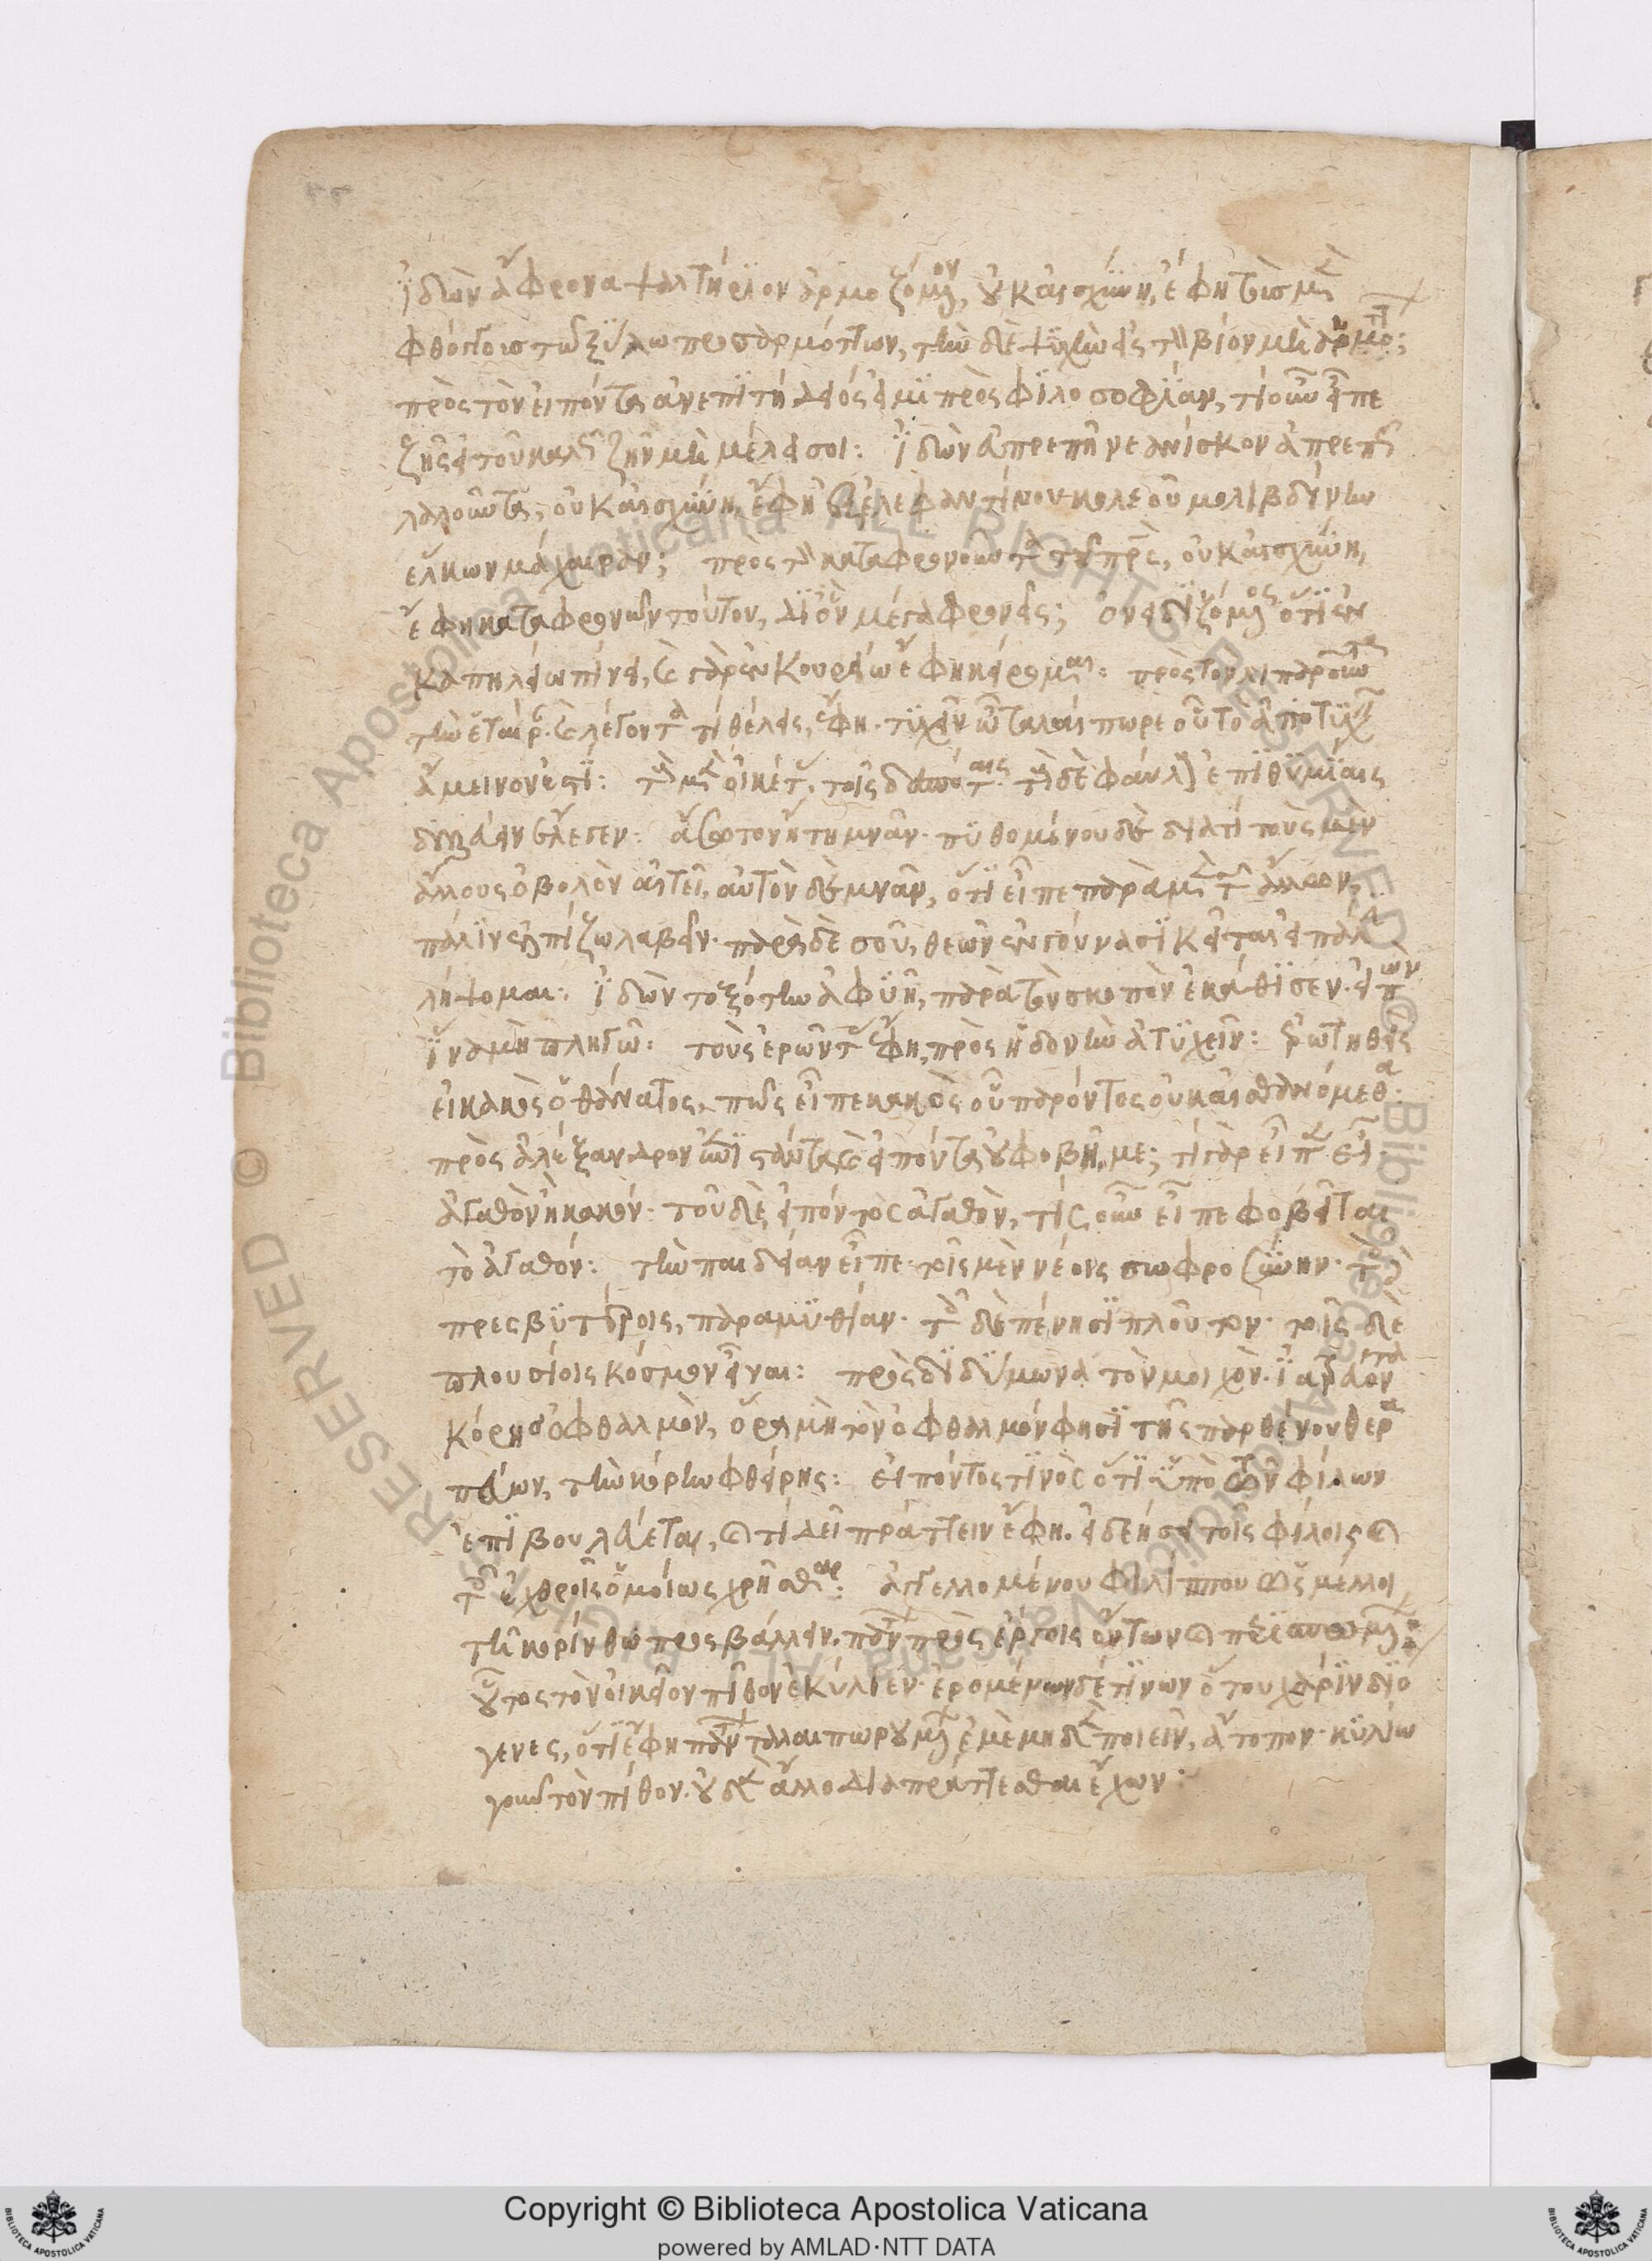 ἰδὼν ἄφρονα ψαλτήριον ἁρμοζόμενον, οὐκ αἰσχύνῃ, ἔφη τοὺς μὲν
φθόγγοις τῷ ξύλῳ προσαρμόττων, τὴν δὲ ψυχὴν εἰς τὸν βίον μὴ ἁρμόττων;
πρὸς τὸν εἰπόντα ἀνεπιτήδειός εἰμι πρὸς φιλοσοφίαν, τί οὖν εἶπε
ζῇς εἰ τοῦ καλῶς ζῆν μὴ μέλει σοι: ἰδὼν εὐπρεπῆ νεανίσκον ἀπρεπῶς
λαλοῦντα, οὐκ αἰσχύνῃ, ἔφη ἐξ ἐλεφαντίνου κολεοῦ μολιβδίνην
ἕλκων μάχαιραν; πρὸς τὸν καταφρονοῦντα τοῦ πατρὸς, οὐκ αἰσχύνῃ,
ἔφη καταφρονῶν τούτου, δι' ὃν μεγαφρονεῖς; ὀνειδιζόμενος ὅτι ἐν
καπηλείῳ πίνει, καὶ γὰρ ἐν κουρείῳ ἔφη κείρομαι: πρὸς τὸν λιπαροῦντα
τὴν ἑταίραν καὶ λέγοντα τί θέλεις, ἔφη τυχεῖν ὦ ταλαίπωρε οὗ τὸ ἀποτυχεῖν
ἄμεινόν ἐστι: τοὺς μὲν οἰκέτας, τοῖς δεσπόταις τοὺς δὲ φαύλους ἐπιθυμίαις
δουλεύειν ἔλεγεν: ἄσωτον ᾔτει μνᾶν. πυθομένου δὲ διὰ τί τοὺς μὲν
ἄλλους ὀβολὸν αἰτεῖ, αὐτὸν δὲ μνᾶν, ὅτι εἶπε παρὰ μὲν τῶν ἄλλων,
πάλιν ἐλπίζω λαβεῖν. παρὰ δὲ σοῦ, θεῶν ἐν γούνασι κεῖται εἰ πάλιν
λήψομαι: ἰδὼν τοξότην ἀφυῆ, παρὰ τὸν σκοπὸν ἐκάθισεν. εἰπὼν
ἵνα μὴ πληγῶ: τοὺς ἐρῶντας ἔφη, πρὸς ἡδονὴν ἀτυχεῖν: ἐρωτηθεὶς
εἰ κακὸς ὁ θάνατος, πῶς εἶπε κακὸς οὗ παρόντος οὐκ αἰσθανόμεθα:
πρὸς ἀλέξανδρον ἐπιστάντα καὶ εἰπόντα οὐ φοβῇ με; τί γὰρ εἶπεν εἶ
ἀγαθὸν ἢ κακόν. τοῦ δὲ, εἰπόντος ἀγαθὸν, τίς οὖν εἶπε φοβεῖται
τὸ ἀγαθόν: τὴν παιδείαν εἶπε τοῖς μὲν νέοις σωφροσύνην. τοῖς δὲ
πρεσβυτέροις, παραμυθίαν. τοῖς δὲ πένησι πλοῦτον. τοῖς δὲ
πλουσίοις κόσμον εἶναι: πρὸς διδύμωνα τὸν μοιχὸν. ἰατρεύοντα
κόρης ὀφθαλμὸν, ὅρα μὴ τὸν ὀφθαλμόν φησι τῆς παρθένου θερα
πεύων, τὴν κόρην φθείρῃς: εἰπόντος τινὸς ὅτι ὑπὸ τῶν φίλων
ἐπιβουλεύεται, καὶ τί δεῖ πράττειν ἔφη. εἰ δεήσει τοῖς φίλοις καὶ
τοῖς ἐχθροῖς ὁμοίως χρῆσθαι: ἀγγελλομένου φιλίππου ὡς μέλλοι
τῇ κορίνθῳ προσβάλλειν. πάντων πρὸς ἔργοις ὄντων καὶ περιθεόντων
οὗτος τὸν οἰκεῖον πίθον ἐκύλιεν. ἐρομένων δέ τινων ὅτου χάριν διό
γενες, ὅτι ἔφη πάντων ταλαιπωρουμένων ἐμὲ μηδὲν ποιεῖν, ἄτοπον. κυλίω
γοῦν τὸν πίθον. οὐδὲν ἄλλο διαπράττεσθαι ἔχων:
Copyright © Biblioteca Apostolica Vaticana
powered by AMLAD·NTT DATA